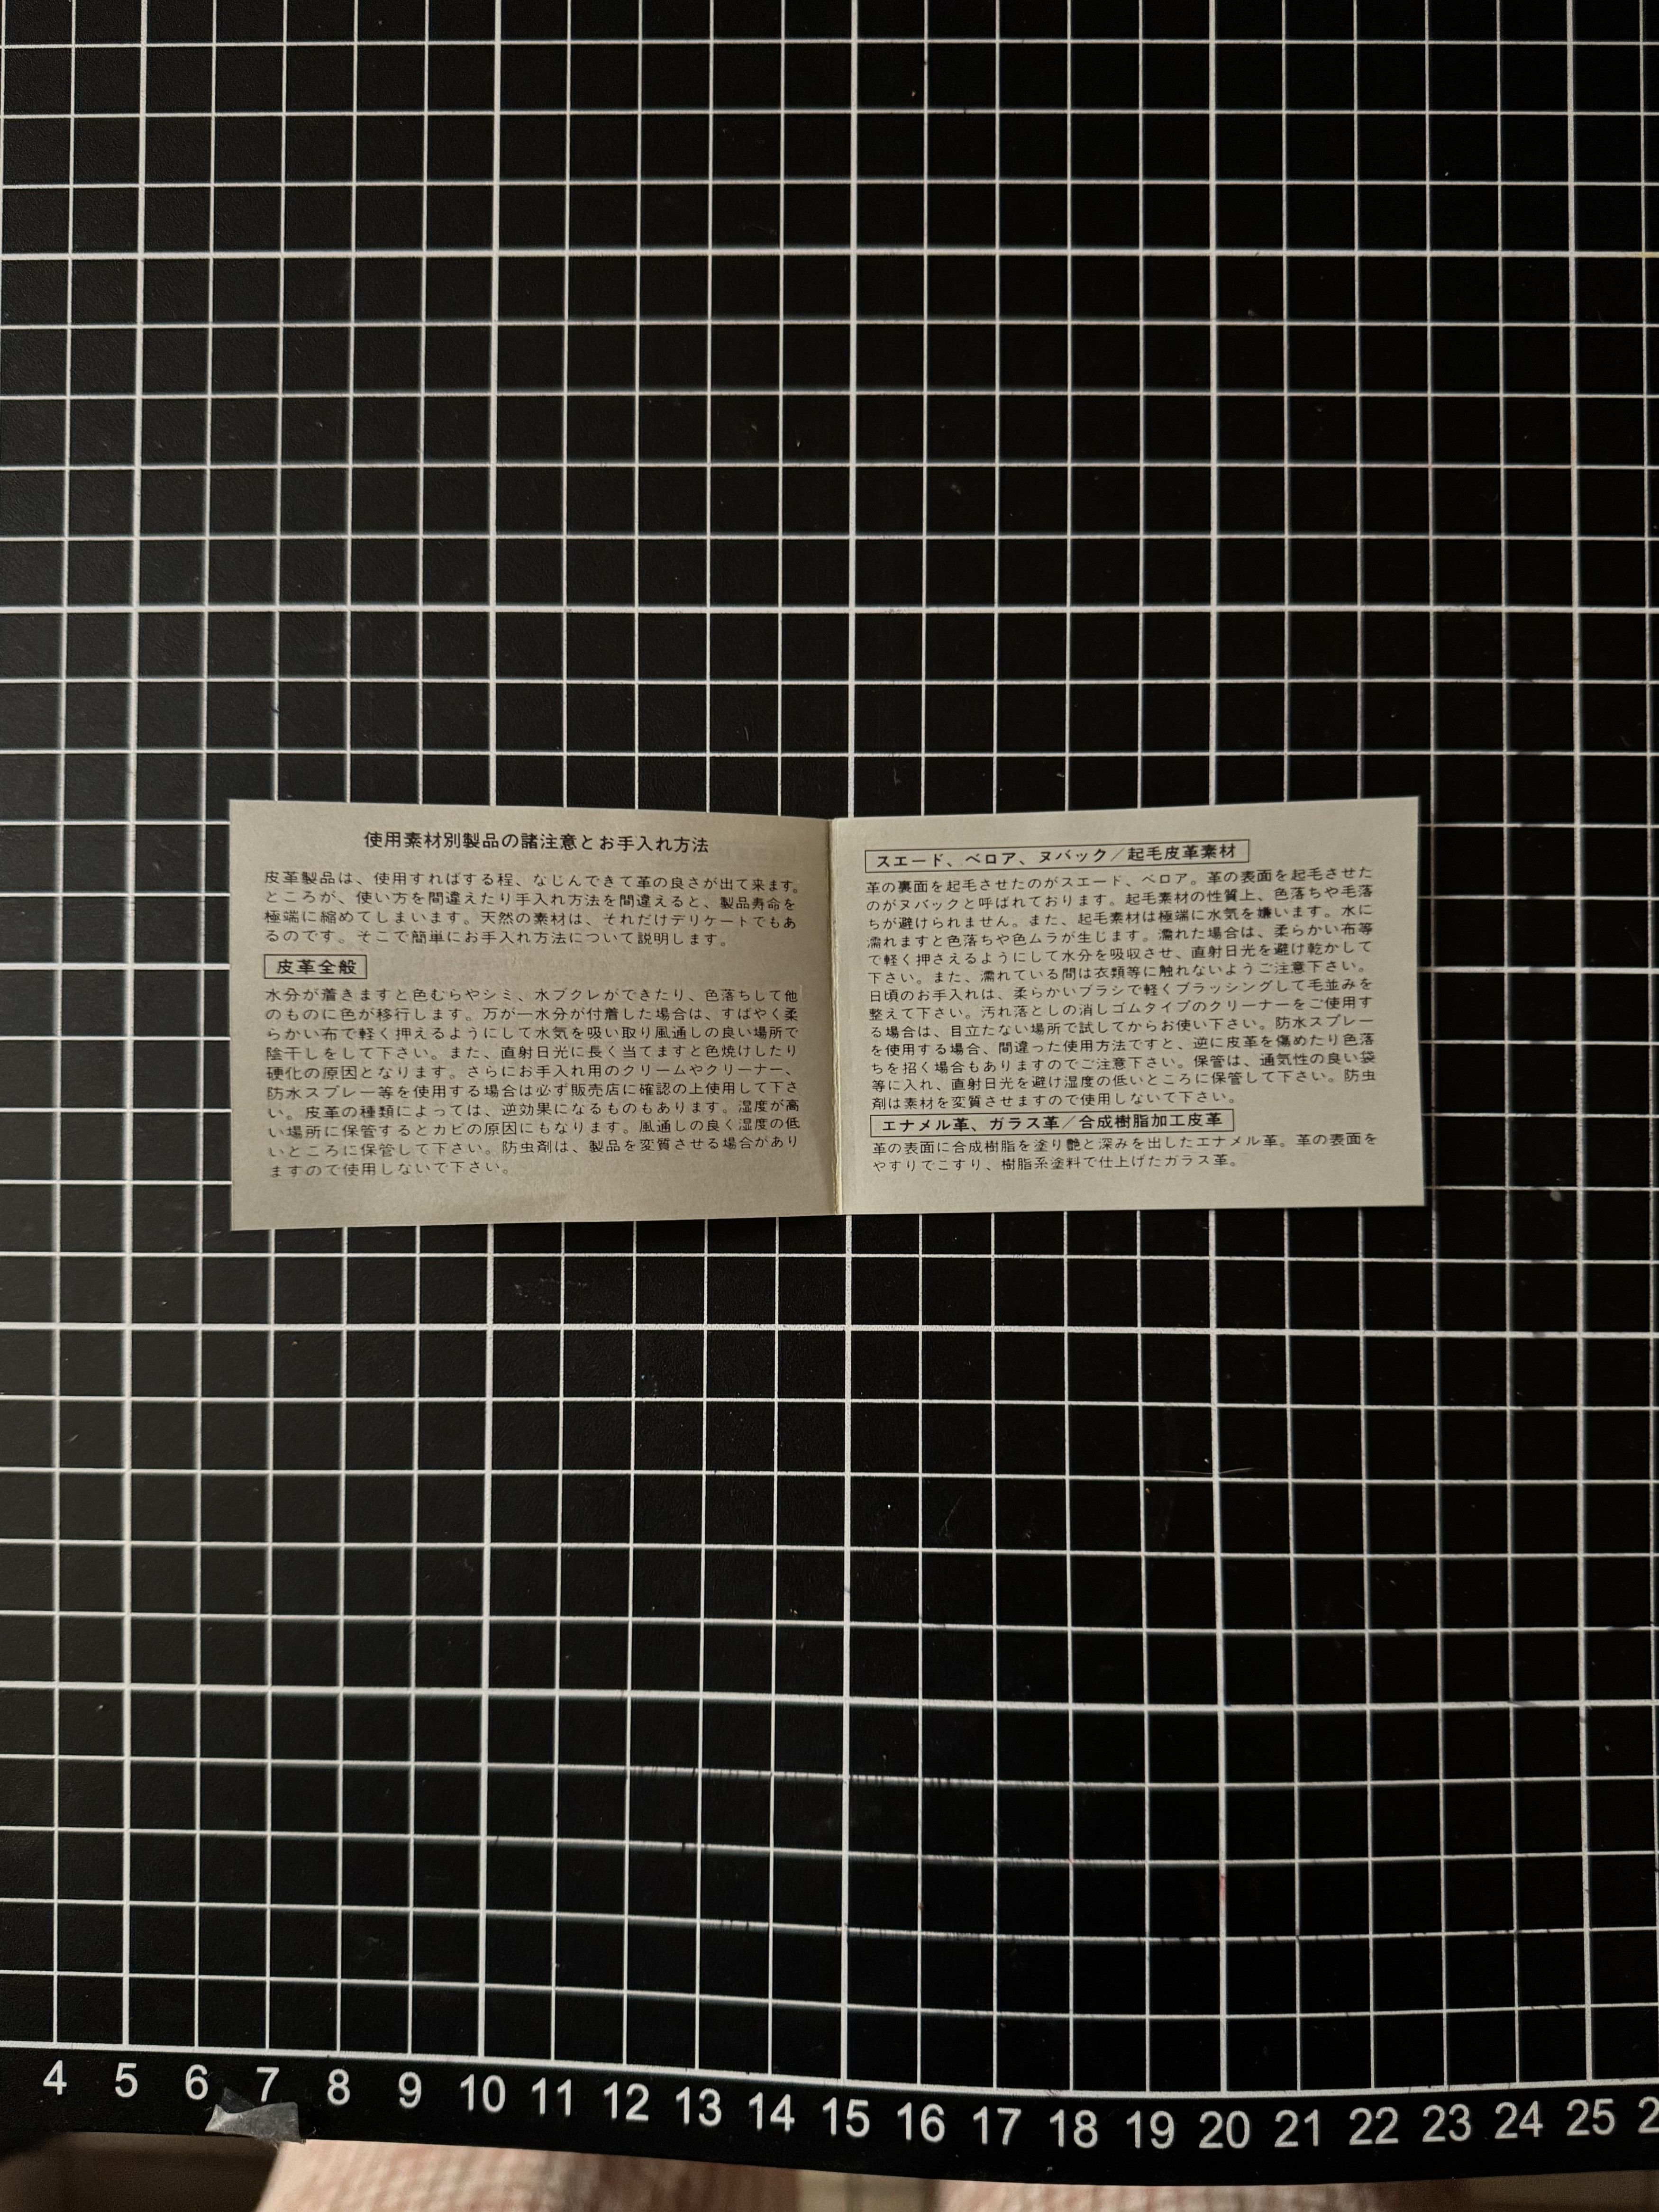 使用素材別製品の諸注意とお手入れ方法
皮革製品は、使用すればする程、なじんできて革の良さが出て来ます。
ところが、使い方を間違えたり手入れ方法を間違えると、製品寿命を
極端に縮めてしまいます。天然の素材は、それだけデリケートでもあ
るのです。そこで簡単にお手入れ方法について説明します。
皮革全般
水分が着きますと色むらやシミ、水ブクレができたり、色落ちして他
のものに色が移行します。万が一水分が付着した場合は、すばやく柔
らかい布で軽く押えるようにして水気を吸い取り風通しの良い場所で
陰干しをして下さい。また、直射日光に長く当てますと色焼けしたり
硬化の原因となります。さらにお手入れ用のクリームやクリーナー、
防水スプレー等を使用する場合は必ず販売店に確認の上使用して下さ
い。皮革の種類によっては、逆効果になるものもあります。湿度が高
い場所に保管するとカビの原因にもなります。風通しの良く湿度の低
いところに保管して下さい。防虫剤は、製品を変質させる場合があり
ますので使用しないで下さい。
スエード、ベロア、ヌバック／起毛皮革素材
革の裏面を起毛させたのがスエード、ベロア。革の表面を起毛させた
のがヌバックと呼ばれております。起毛素材の性質上、色落ちや毛落
ちが避けられません。また、起毛素材は極端に水気を嫌います。水に
濡れますと色落ちや色ムラが生じます。濡れた場合は、柔らかい布等
で軽く押さえるようにして水分を吸収させ、直射日光を避け乾かして
下さい。また、濡れている間は衣類等に触れないようご注意下さい。
日頃のお手入れは、柔らかいブラシで軽くブラッシングして毛並みを
整えて下さい。汚れ落としの消しゴムタイプのクリーナーをご使用す
る場合は、目立たない場所で試してからお使い下さい。防水スプレー
を使用する場合、間違った使用方法ですと、逆に皮革を傷めたり色落
ちを招く場合もありますのでご注意下さい。保管は、通気性の良い袋
等に入れ、直射日光を避け湿度の低いところに保管して下さい。防虫
剤は素材を変質させますので使用しないで下さい。
エナメル革、ガラス革／合成樹脂加工皮革
革の表面に合成樹脂を塗り艶と深みを出したエナメル革。革の表面を
やすりでこすり、樹脂系塗料で仕上げたガラス革。
4 5 6 7 8 9 10 11 12 13 14 15 16 17 18 19 20 21 22 23 24 25 2